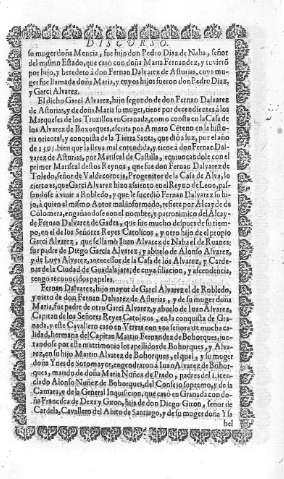 DISCURSO.
su muger doña Mencia, fue hijo don Pedro Diaz de Naba, señor
del mismo Estado, que casò con doña Maria Fernandez, y tuvierõ
por hijo, y heredero à don Fernan Dalvarez de Asturias, cuya mu-
ger fue llamada doña Maria, y cuyos hijos fueron don Pedro Diaz,
y Garci Alvarez.
El dicho Garci Alvarez, hijo segundo de don Fernan Dalvarez
de Asturias, y de doña Maria su muger, tiene por descendientes à los
Marqueses de los Truxillos en Granada, como consta en la Casa de
los Alvarez de Boxorques, escrita por Amaro Citeno en la histo-
ria oriental, y conquista de la Tierra Santa, que diò à luz, por el año
de 1501 bien que la lleva mal entendida, y tiene à don Fernan Dal-
varez de Asturias, por Mariscal de Castilla, equivocandole con el
primer Mariscal destos Reynos, que fue don Fernan Dalvarez de
Toledo, señor de Valdecorneja, Progenitor de la Casa de Alva, lo
cierto es, que Garci Alvarez hizo assiento en el Reyno de Leon, pas-
sandose à vivir a Robledo, y que le sucediò Fernan Dalvarez su hi-
jo, à quien el mismo Autor mal informado, refiere por Alcayde de
Colomera, engañandose con el nombre, y patronimico del Alcay-
de Fernan Dalvarez de Gadea, que fue mucho despues de su tiem-
po, en el de los Señores Reyes Catolicos, y otro hijo de el propio
Garci Alvarez, que se llamò Iuan Alvarez de Naba el de Ruanes,
fue padre de Diego Garcia Alvarez, y abuelo de Alonso Alvarez,
y de Luys Alvarez, antecessor de la Casa de los Alvarez, y Carde-
nas de la Ciudad de Guadalajara; de cuya filiacion, y ascendencia
tengo reconocidos papeles.
Fernan Dalvarez, hijo mayor de Garci Alvarez el de Robledo,
y nieto de don Fernan Dalvarez de Asturias, y de su muger doña
Maria, fue padre de otro Garci Alvarez, abuelo de Iuan Alvarez,
Capitan de los Señores Reyes Catolicos, en la conquista de Gra-
nada, y este Cavallero casò en Yerena con una señora de mucha ca-
lidad, hermana del Capitan Mateo Fernandez de Bohorques, jun-
tandose por este matrimonio los apellidos de Bohorques, y Alva-
rez, en su hijo Martin Alvarez de Bohorques, el qual, y su muger
doña Ynes de Sotomayor, engendraron à Iuan Alvarez de Bohor-
ques, marido de doña Maria Nuñez de Prado, padres del Licen-
ciado Alonso Nuñez de Bohorques, del Consejo supremo, y de la
Camara, e de la General Inquisicion, que casò en Granada con do-
ña Francisca de Deza y Giron, hija de don Diego Giron, señor de
Cardela, Cavallero del Abito de Santiago, y de su muger doña Ysa
bel